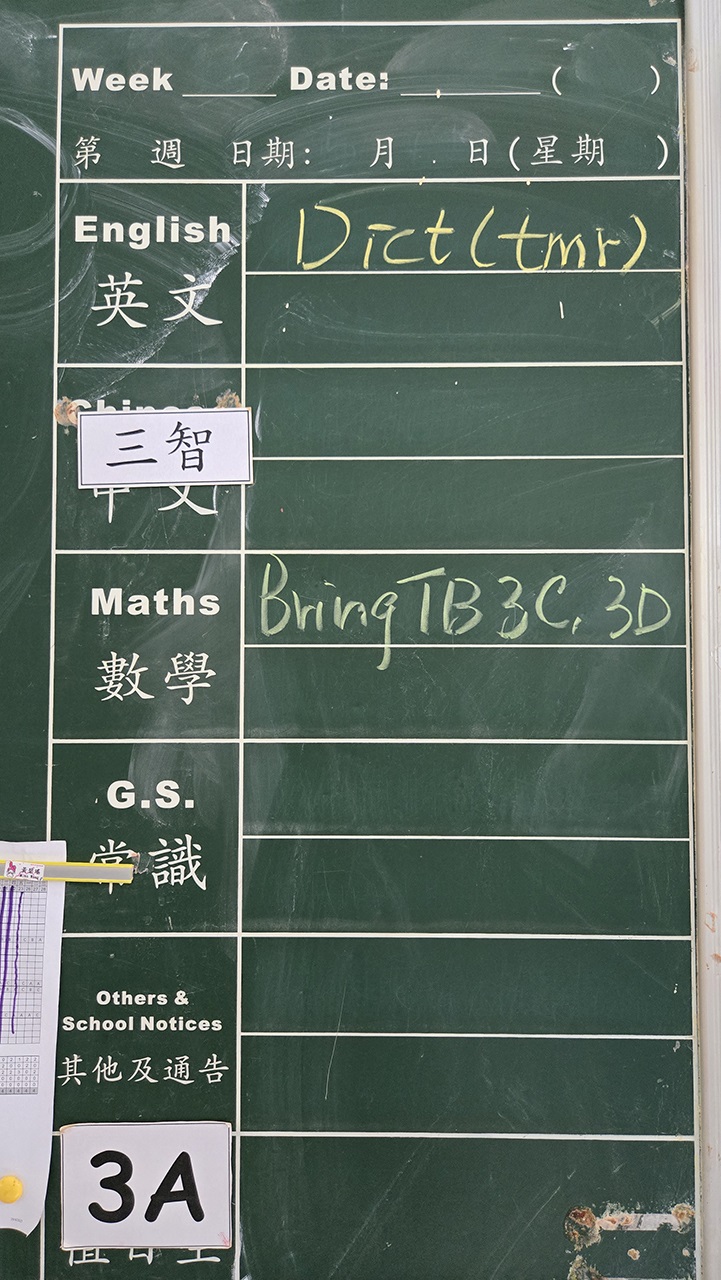 Week _____ Date: __________ ( )
第 週 日期: 月 日(星期 )
English
英文
Dict (tmr)
三智
中文
Maths
數學
Bring TB 3C, 3D
G.S.
常識
Others &
School Notices
其他及通告
3A